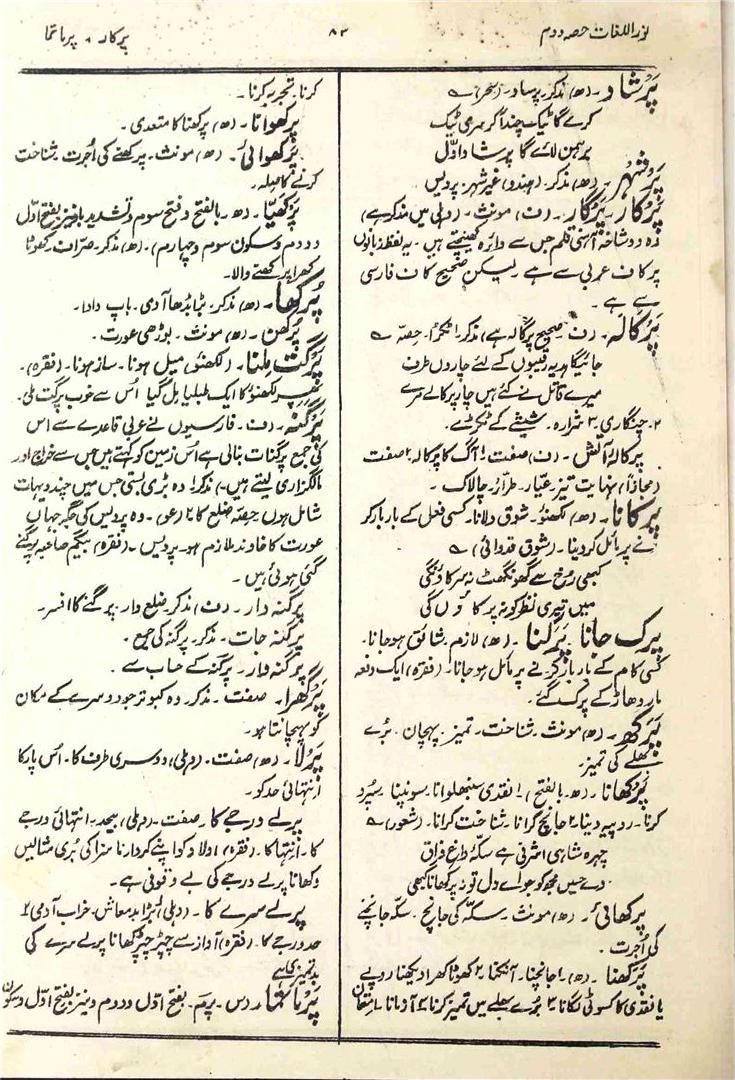 نور اللغات حصہ دوم
۸۳
پرکار ، پرماتما
پَرْشاد۔ (ھ) مذکر۔ پرساد۔ (سحر) ؎
کرے گا ٹیک چندا گر مری ٹیک
برہمن لائے گا پرشاد اوّل
پَرشہر۔ (ھ) مذکر۔ (ہندو) غیر شہر۔ پردیس
پَرْکار۔ پَرْگار۔ (ن) مونث۔ (دلی میں مذکر ہے)
وہ دوشاخہ آہنی قلم جس سے دائرہ کھینچتے ہیں۔ یہ لفظ زبانوں
پر کاف عربی سے ہے لیکن صحیح کاف فارسی
سے ہے۔
پَرْکالہ۔ (ن۔ صحیح پرگالہ ہے) مذکر۔ ۱ ٹکڑا۔ حصّہ ؎
جائیگا ہدیہ رقیبوں کے لئے چاروں طرف
میرے قاتل نے کئے ہیں چار پرکالے مرے
۲۔ چنگاری ۳ شرارہ۔ شیشے کے ٹکڑے۔
پرکالۂ آتش۔ (ن) صفت ۱ آگ کا پرکالہ ۲ صفت
(مجازاً) نہایت تیز عیار۔ طرّار۔ چالاک۔
پرکانا۔ (ھ) لکھنؤ۔ شوق دلانا۔ کسی فعل کے بار بار کر
نے پر مائل کردینا۔ (شوق قدوائی) ؎
کبھی رُخ سے گھونگھٹ نہ سرکاؤنگی
میں تیری نظر کو نہ پرکاؤں گی
پرک جانا۔ پَرکنا۔ (ھ) لازم۔ شائق ہوجانا۔
کسی کام کے بار بار کرنے پر مائل ہوجانا۔ (فقرہ) ایک دفعہ
مار دھاڑ کے پرک گئے۔
پَرَکھ۔ (ھ) مونث۔ شناخت۔ تمیز۔ پہچان۔ بُرے
بھلے کی تمیز۔
پَرْکھانا۔ (ھ۔ بالفتح) ۱ نقدی سنبھلوانا۔ سونپنا۔ سپرد
کرنا۔ روپیہ دینا ۲ جانچ کرانا۔ شناخت کرانا۔ (شعور) ؎
چہرہ شاہی اشرفی ہے سکّۂ داغ فراق
دے حسیں مجھکو جو اے دل تو نہ پرکھانا کبھی
پرکھائی۔ (ھ) مونث۔ سکّہ کی جانچ۔ سکّہ جانچنے
کی اُجرت۔
پَرَکھنا۔ (ھ) ۱ جانچنا۔ آنکنا ۲ کھوٹا کھرا دیکھنا روپے
یا نقدی کا کسوٹی لگانا ۳ بُرے بھلے میں تمیز کرنا ۴ آزمانا۔ امتحان
کرنا۔ تجربہ کرنا۔
پرکھوانا۔ (ھ) پرکھنا کا متعدی۔
پَرَکھوائی۔ (ھ) مونث۔ پرکھنے کی اُجرت۔ شناخت
کرنے کا صلہ۔
پَرَکھیّا۔ (ھ۔ بالفتح و فتح سوم و تشدید یا نیز بفتح اوّل
و دوم و سکون سوم و چہارم)۔ (ھ) مذکر۔ صرّاف۔ کھوٹا
کھرا پرکھنے والا۔
پُرکھا۔ (ھ) مذکر۔ بڈھا آدمی۔ باپ دادا۔
پُرکھن۔ (ھ) مونث۔ بوڑھی عورت۔
پَرگت ملنا۔ (لکھنؤ) میل ہونا۔ ساز ہونا۔ (فقرہ)۔
پھر لکھنؤ کا ایک طبلیا مل گیا اُس سے خوب پرگت ملی۔
پَرگنہ۔ (ن۔ فارسیوں نے عربی قاعدے سے اس
کی جمع پرگنات بنالی ہے اُس زمین کو کہتے ہیں جس سے خراج اور
مالگزاری لیتے ہیں۔) مذکر ۱ وہ بڑی بستی جس میں چند دیہات
شامل ہوں حصّہ ضلع کا ۲ (عو)۔ وہ پردیس کی جگہ جہاں
عورت کا خاوند ملازم ہو۔ پردیس۔ (فقرہ) بیگم صاحبہ پرگنے
گئی ہوئی ہیں۔
پرگنہ دار۔ (ن) مذکر۔ ضلع دار۔ پرگنے کا افسر۔
پرگنہ جات۔ مذکر۔ پرگنہ کی جمع۔
پرگنہ وار۔ پرگنہ کے حساب سے۔
پَرگھرا۔ صفت۔ مذکر۔ وہ کبوتر جو دوسرے کے مکان
کو پہچانتا ہو۔
پَرلا۔ (ھ) صفت۔ (دہلی) دوسری طرف کا۔ اُس پار کا
انتہائی حد کو۔
پرلے درجے کا۔ صفت۔ (دہلی) بیحد۔ انتہائی درجے
کا۔ انتہا کا۔ (فقرہ) اولاد کو اپنے کردار نا سزا کی بُری مثالیں
دکھانا پرلے درجے کی بے وقوفی ہے۔
پرلے سرے کا۔ (دہلی) بڑا بدمعاش۔ خراب آدمی ۲
حد درجے کا۔ (فقرہ) آواز سے چپڑ چپڑ کھانا پرلے سرے کی
بدتمیز کا ہے
پَرْماتما۔ (س۔ پرم۔ بفتح اوّل و دوم و نیز بفتح اوّل و سکون